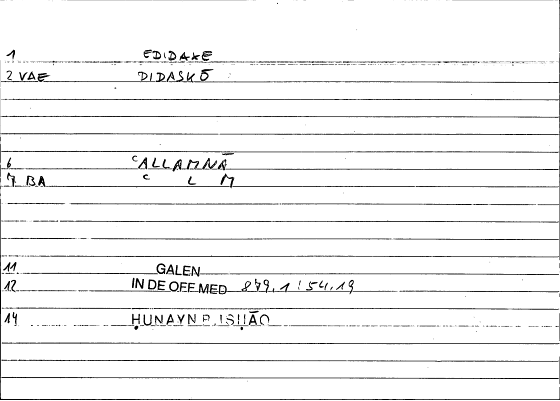 1 EDIDAXE
2 VAE DIDASKŌ
6 ʿALLAMNĀ
7 BA ʿ L M
11 GALEN
12 IN DE OFF MED 879,1 / 54,19
14 ḤUNAYN B. ISḤĀQ